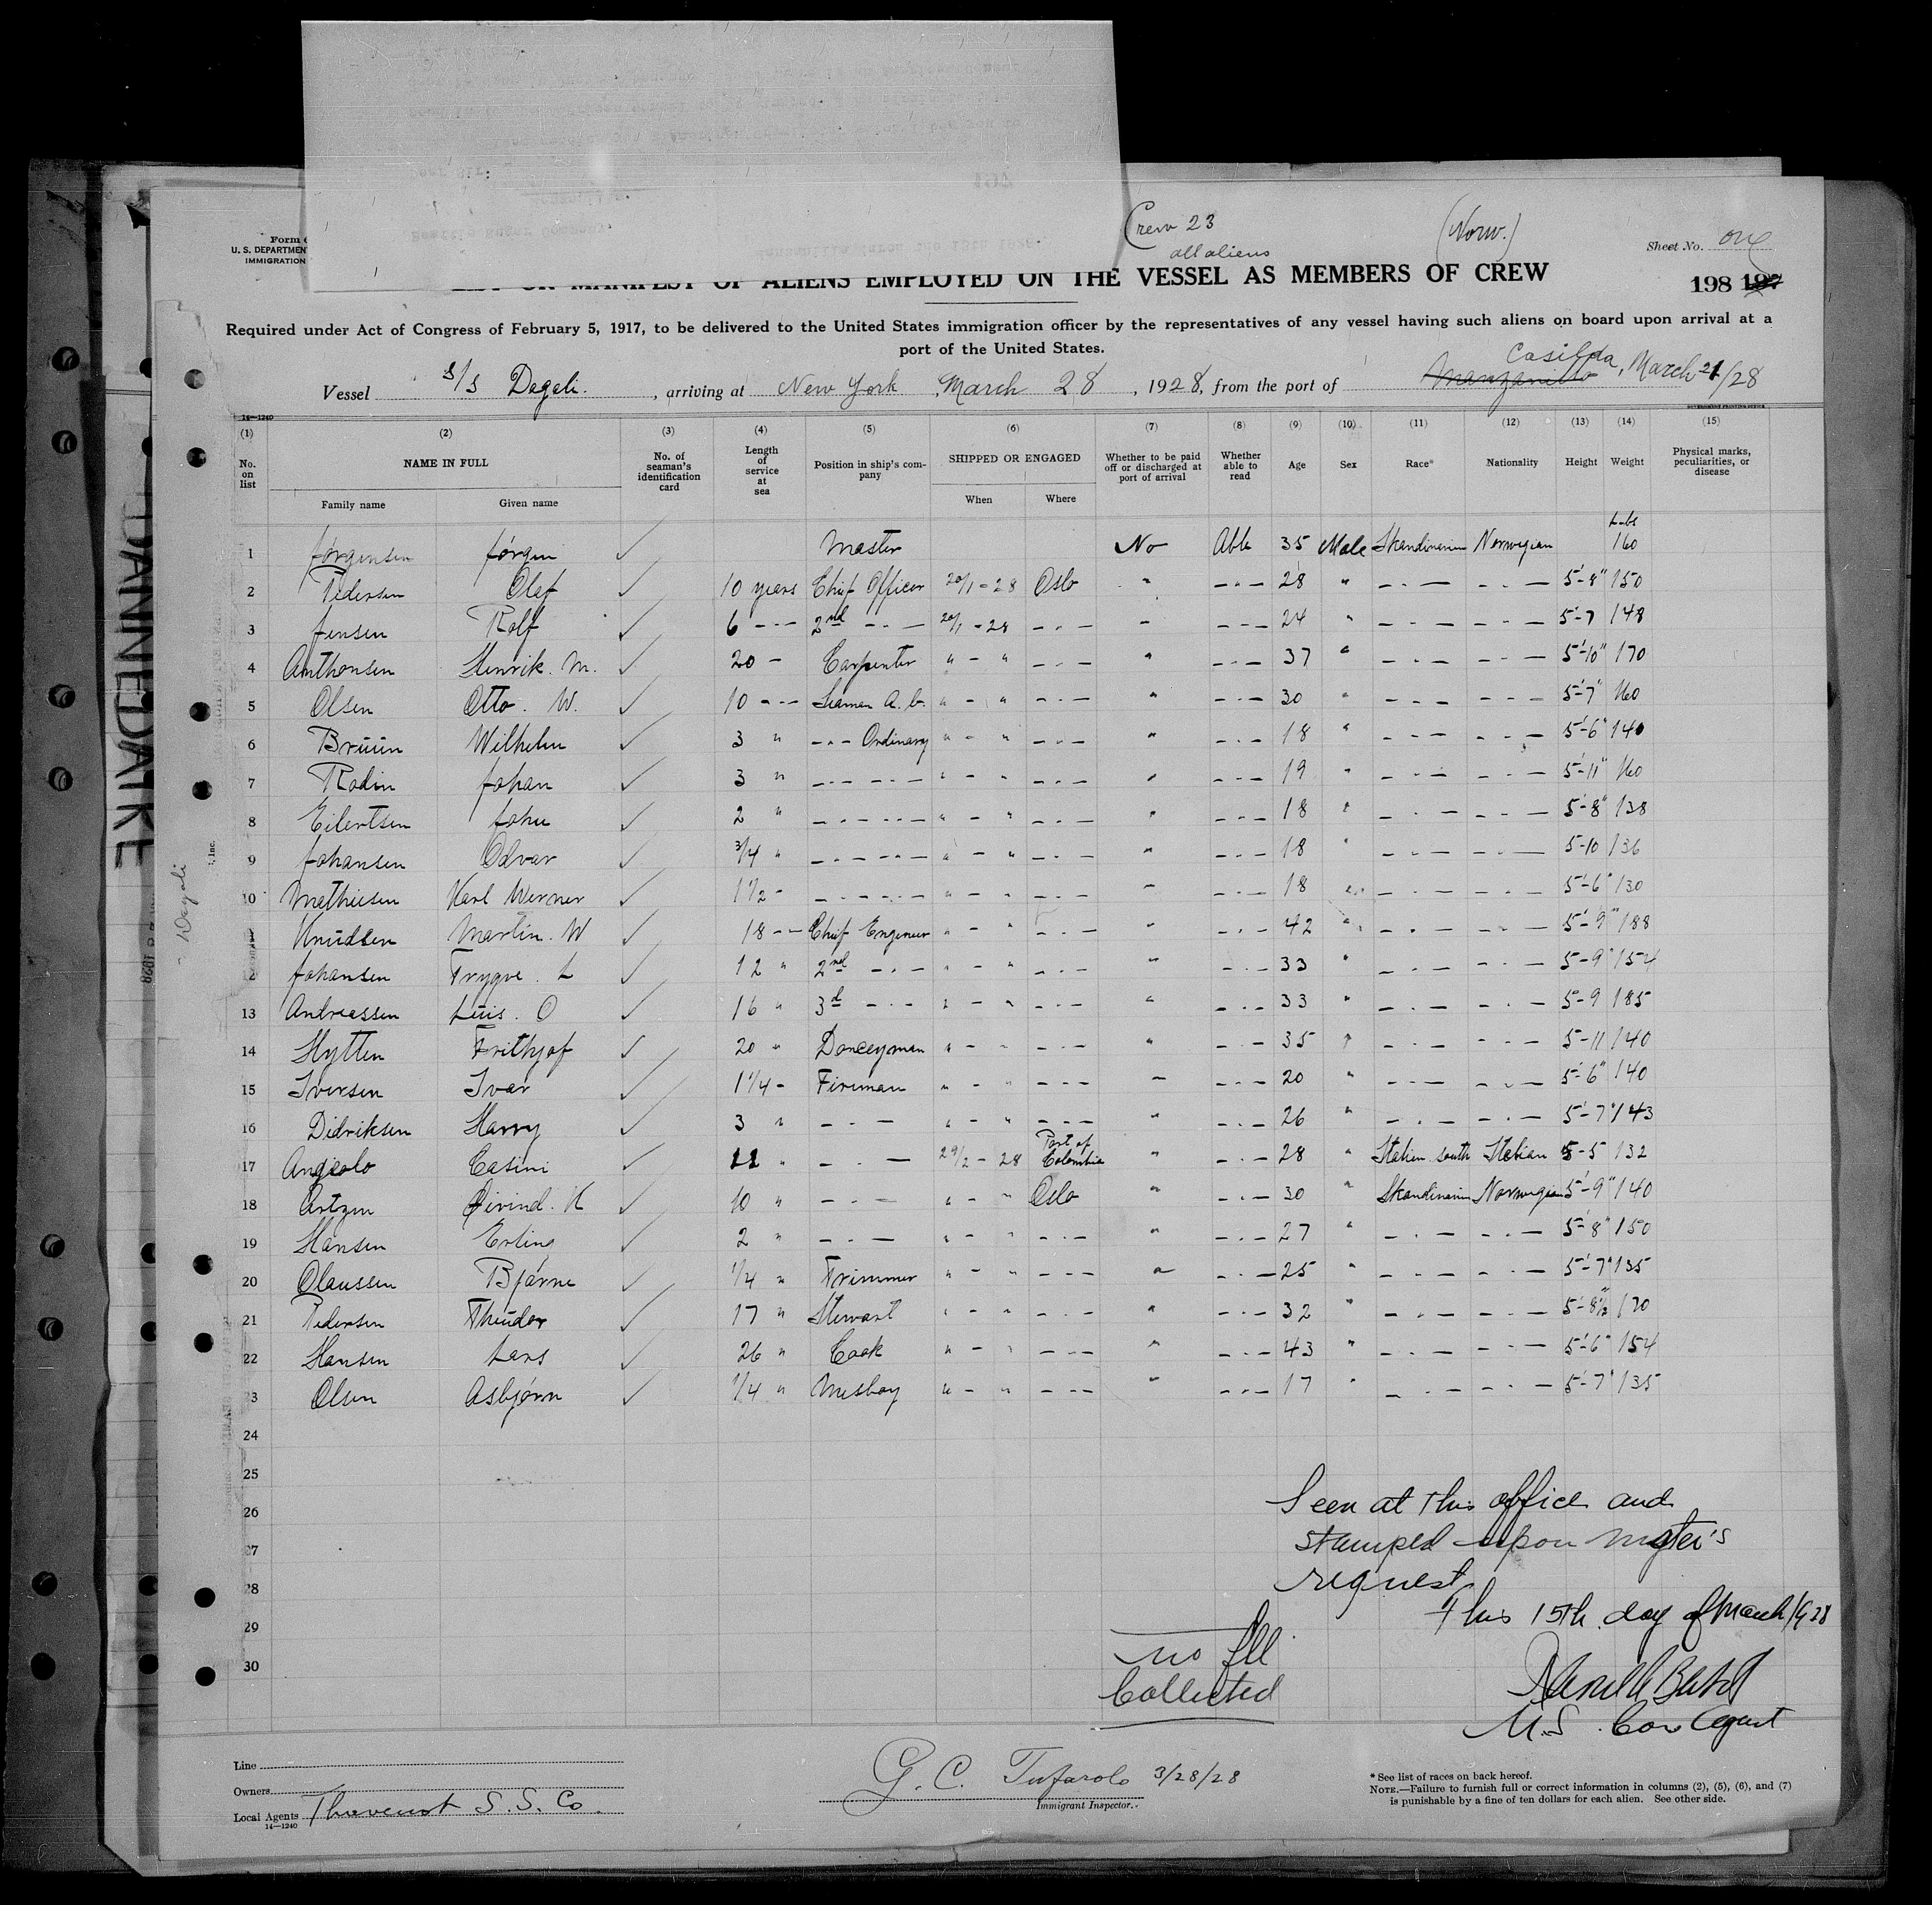 Crew 23
all aliens
(Norw.)
Form
U. S. DEPARTMENT
IMMIGRATION
Sheet No. one
MANIFEST OF ALIENS EMPLOYED ON THE VESSEL AS MEMBERS OF CREW
198
Required under Act of Congress of February 5, 1917, to be delivered to the United States immigration officer by the representatives of any vessel having such aliens on board upon arrival at a
port of the United States.
Vessel S/S Dagali. , arriving at New York , March 28 , 1928, from the port of Manzanillo Casilda, March 21/28
14—1240
GOVERNMENT PRINTING OFFICE
(1) (2) (3) (4) (5) (6) (7) (8) (9) (10) (11) (12) (13) (14) (15)
No. on list NAME IN FULL No. of seaman's identification card Length of service at sea Position in ship's company SHIPPED OR ENGAGED Whether to be paid off or discharged at port of arrival Whether able to read Age Sex Race* Nationality Height Weight Physical marks, peculiarities, or disease
Family name Given name When Where
1 Jørgensen Jørgen ✓ Master No Able 35 Male Skandinavian Norwegian Lbs 160
2 Pedersen Olaf ✓ 10 years Chief Officer 20/1-28 Oslo " -"- 28 " -"- -"- 5'-8" 150
3 Jensen Rolf ✓ 6 -"- 2nd -"- 20/1-28 -"- " -"- 24 " -"- -"- 5-7 148
4 Anthonsen Henrik. M. ✓ 20 - Carpenter " - " -"- " -"- 37 " -"- -"- 5'-10" 170
5 Olsen Otto. W. ✓ 10 -"- Seaman A.b. " - " -"- " -"- 30 " -"- -"- 5'-7" 160
6 Bruun Wilhelm ✓ 3 " -"- Ordinary " - " -"- " -"- 18 " -"- -"- 5'-6" 140
7 Rodin Johan ✓ 3 " -"- -"- " - " -"- " -"- 19 " -"- -"- 5'-11" 160
8 Eilertsen John ✓ 2 " -"- -"- " - " -"- " -"- 18 " -"- -"- 5'-8" 138
9 Johansen Odvar ✓ 3/4 " -"- -"- " - " -"- " -"- 18 " -"- -"- 5-10 136
10 Mathiesen Karl Werner ✓ 1 1/2 - -"- -"- " - " -"- " -"- 18 " -"- -"- 5'-6" 130
Knudsen Martin. W ✓ 18 -- Chief Engineer " - " -"- " -"- 42 " -"- -"- 5'-9" 188
12 Johansen Trygve. L ✓ 12 " 2nd -"- " - " -"- " -"- 33 " -"- -"- 5-9" 154
13 Andreassen Luis. O ✓ 16 " 3d -"- " - " -"- " -"- 33 " -"- -"- 5-9 185
14 Hytten Frithjof ✓ 20 " Donceyman " - " -"- " -"- 35 " -"- -"- 5-11 140
15 Iversen Ivar ✓ 1 1/4 - Fireman " - " -"- " -"- 20 " -"- -"- 5'-6" 140
16 Didriksen Harry ✓ 3 " -"- " - " -"- " -"- 26 " -"- -"- 5'-7" 143
17 Angelo Casini ✓ 11 " -"- 29/2-28 Port of Colombia " -"- 28 " Italien south Italian 5-5 132
18 Øivind. K ✓ 10 " -"- " - " Oslo " -"- 30 " Skandinavian Norwegian 5'-9" 140
19 Hansen Erling ✓ 2 " -"- " - " -"- " -"- 27 " -"- -"- 5'-8" 150
20 Olaussen Bjarne ✓ 1/4 " Trimmer " - " -"- " -"- 25 " -"- -"- 5'-7" 135
21 Pedersen Theudor ✓ 17 " Stewart " - " -"- " -"- 32 " -"- -"- 5'-8 1/2" 170
22 Hansen Lars ✓ 26 " Cook " - " -"- " -"- 43 " -"- -"- 5'-6" 154
23 Olsen Asbjørn ✓ 1/4 " Mesboy " - " -"- " -"- 17 " -"- -"- 5'-7" 135
24
25
26
27
28
29
30
Seen at this office and
stamped upon master's
request
this 15th day of March 1928
U.S. Con Agent
no fee
Collected
Line
Owners
Local Agents Thevenot S. S. Co.
14—1240
G. C. Tufarolo 3/28/28
Immigrant Inspector.
* See list of races on back hereof.
NOTE.—Failure to furnish full or correct information in columns (2), (5), (6), and (7)
is punishable by a fine of ten dollars for each alien. See other side.
DANNEDAIKE
Dagali
, Inc.